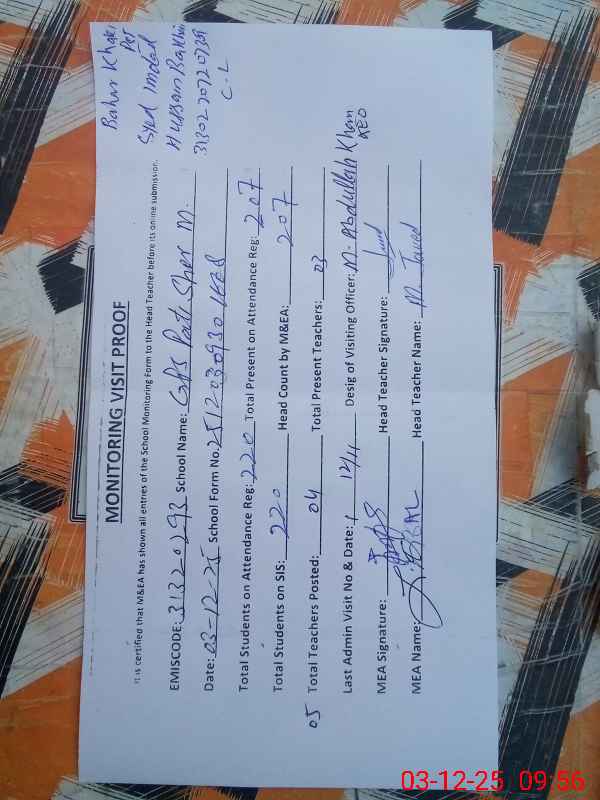 Bahar Khan
Per
Syed Imdad
Hussain Bakhsh
C-L
MONITORING VISIT PROOF
It is certified that M&EA has shown all entries of the School Monitoring Form to the Head Teacher before its online submission.
EMISCODE: 31320293 School Name: GPS Sher M.
Date: 03-12-25 School Form No.
Total Students on Attendance Reg: 220 Total Present on Attendance Reg: 207
Total Students on SIS: 220 Head Count by M&EA: 207
05 Total Teachers Posted: 04 Total Present Teachers: 03
Last Admin Visit No & Date: 12/4 Desig of Visiting Officer: M. Abdullah Khan
AEO
MEA Signature: Head Teacher Signature:
MEA Name: Head Teacher Name: M Javed
03-12-25 09:56